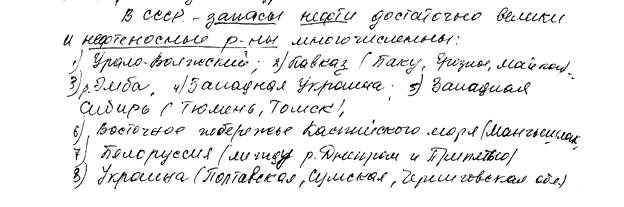 В СССР - запасы нефти достаточно велики
и нефтеносные р-ны многочисленны:
1) Урало-Волжский; 2) Кавказ (Баку, Грозное, Майкоп).
3) р. Эмба, 4) Западная Украина; 5) Западная
Сибирь (Тюмень, Томск),
6) Восточное побережье Каспийского моря (Мангышлак,
7) Белоруссия (между р. Днепром и Припятью)
8) Украина (Полтавская, Сумская, Черниговская обл)